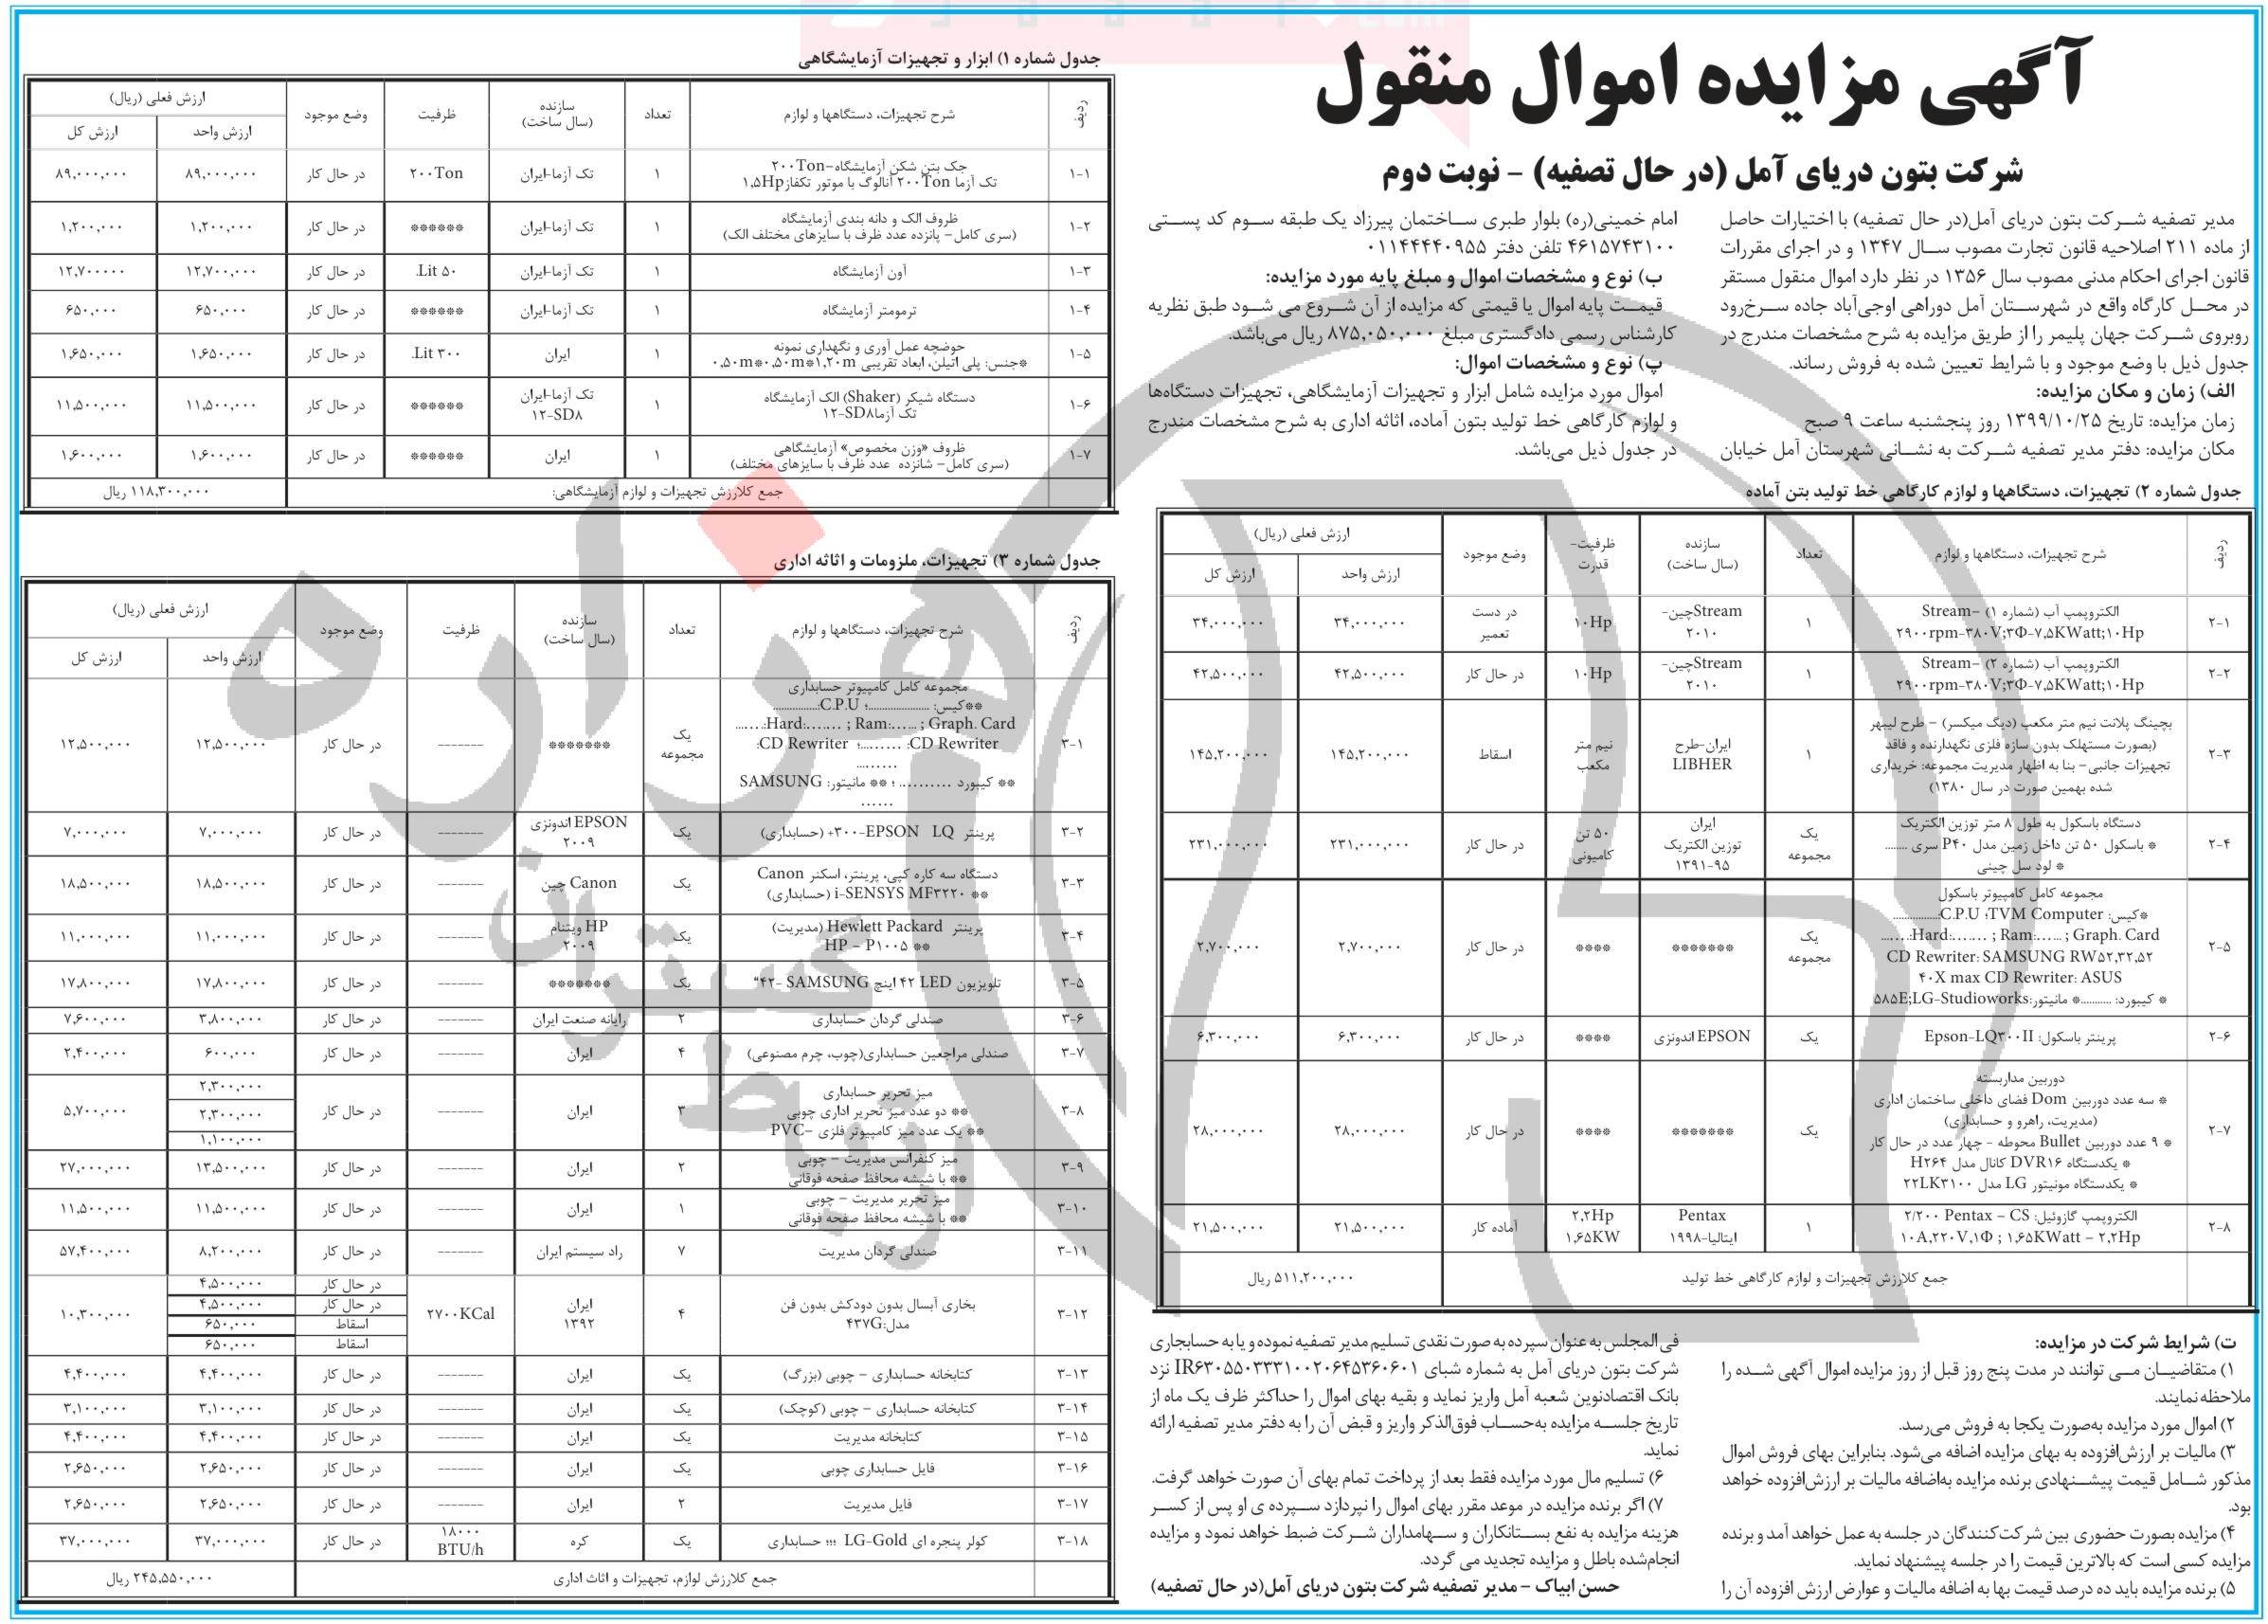 آگهی مزایده اموال منقول
شرکت بتون دریای آمل (در حال تصفیه) - نوبت دوم
مدیر تصفیه شرکت بتون دریای آمل(در حال تصفیه) با اختیارات حاصل
از ماده ۲۱۱ اصلاحیه قانون تجارت مصوب سال ۱۳۴۷ و در اجرای مقررات
قانون اجرای احکام مدنی مصوب سال ۱۳۵۶ در نظر دارد اموال منقول مستقر
در محل کارگاه واقع در شهرستان آمل دوراهی اوجی‌آباد جاده سرخ‌رود
روبروی شرکت جهان پلیمر را از طریق مزایده به شرح مشخصات مندرج در
جدول ذیل با وضع موجود و با شرایط تعیین شده به فروش رساند.
الف) زمان و مکان مزایده:
زمان مزایده: تاریخ ۱۳۹۹/۱۰/۲۵ روز پنجشنبه ساعت ۹ صبح
مکان مزایده: دفتر مدیر تصفیه شرکت به نشانی شهرستان آمل خیابان
امام خمینی(ره) بلوار طبری ساختمان پیرزاد یک طبقه سوم کد پستی
۴۶۱۵۷۴۳۱۰۰ تلفن دفتر ۰۱۱۴۴۴۴۰۹۵۵
ب) نوع و مشخصات اموال و مبلغ پایه مورد مزایده:
قیمت پایه اموال یا قیمتی که مزایده از آن شروع می شود طبق نظریه
کارشناس رسمی دادگستری مبلغ ۸۷۵,۰۵۰,۰۰۰ ریال می‌باشد.
پ) نوع و مشخصات اموال:
اموال مورد مزایده شامل ابزار و تجهیزات آزمایشگاهی، تجهیزات دستگاه‌ها
و لوازم کارگاهی خط تولید بتون آماده، اثاثه اداری به شرح مشخصات مندرج
در جدول ذیل می‌باشد.
جدول شماره ۲) تجهیزات، دستگاهها و لوازم کارگاهی خط تولید بتن آماده
ردیف شرح تجهیزات، دستگاهها و لوازم تعداد سازنده (سال ساخت) ظرفیت- قدرت وضع موجود ارزش فعلی (ریال)
ارزش واحد ارزش کل
۲-۱ الکتروپمپ آب (شماره ۱) -Stream ۱ Streamچین- ۲۰۱۰ ۱۰Hp در دست تعمیر ۳۴,۰۰۰,۰۰۰ ۳۴,۰۰۰,۰۰۰
۲۹۰۰rpm-۳۸۰V;۳Φ-۷,۵KWatt;۱۰Hp
۲-۲ الکتروپمپ آب (شماره ۲) -Stream ۱ Streamچین- ۲۰۱۰ ۱۰Hp در حال کار ۴۲,۵۰۰,۰۰۰ ۴۲,۵۰۰,۰۰۰
۲۹۰۰rpm-۳۸۰V;۳Φ-۷,۵KWatt;۱۰Hp
۲-۳ بچینگ پلانت نیم متر مکعب (دیگ میکسر) - طرح لیبهر ۱ ایران-طرح LIBHER نیم متر مکعب اسقاط ۱۴۵,۲۰۰,۰۰۰ ۱۴۵,۲۰۰,۰۰۰
(بصورت مستهلک بدون سازه فلزی نگهدارنده و فاقد
تجهیزات جانبی- بنا به اظهار مدیریت مجموعه: خریداری
شده بهمین صورت در سال ۱۳۸۰)
۲-۴ دستگاه باسکول به طول ۸ متر توزین الکتریک یک مجموعه ایران توزین الکتریک ۱۳۹۱-۹۵ ۵۰ تن کامیونی در حال کار ۲۳۱,۰۰۰,۰۰۰ ۲۳۱,۰۰۰,۰۰۰
* باسکول ۵۰ تن داخل زمین مدل P۴۰ سری ........
* لود سل چینی
۲-۵ مجموعه کامل کامپیوتر باسکول یک مجموعه ******* **** در حال کار ۲,۷۰۰,۰۰۰ ۲,۷۰۰,۰۰۰
*کیس: TVM Computer؛ C.P.U:................
Hard:....... ; Ram:...... ; Graph. Card:.......
CD Rewriter: SAMSUNG RW۵۲,۳۲,۵۲
۴۰X max CD Rewriter: ASUS
* کیبورد: ...........* مانیتور:۵۸۵E;LG-Studioworks
۲-۶ پرینتر باسکول: Epson-LQ۳۰۰II یک EPSON اندونزی **** در حال کار ۶,۳۰۰,۰۰۰ ۶,۳۰۰,۰۰۰
۲-۷ دوربین مداربسته یک ******* **** در حال کار ۲۸,۰۰۰,۰۰۰ ۲۸,۰۰۰,۰۰۰
* سه عدد دوربین Dom فضای داخلی ساختمان اداری
(مدیریت، راهرو و حسابداری)
* ۹ عدد دوربین Bullet محوطه - چهار عدد در حال کار
* یکدستگاه DVR۱۶ کانال مدل H۲۶۴
* یکدستگاه مونیتور LG مدل ۲۲LK۳۱۰۰
۲-۸ الکتروپمپ گازوئیل: ۲/۲۰۰ Pentax - CS ۱ Pentax ایتالیا-۱۹۹۸ ۲,۲Hp ۱,۶۵KW آماده کار ۲۱,۵۰۰,۰۰۰ ۲۱,۵۰۰,۰۰۰
۱۰A,۲۲۰V,۱Φ ; ۱,۶۵KWatt - ۲,۲Hp
جمع کلارزش تجهیزات و لوازم کارگاهی خط تولید ۵۱۱,۲۰۰,۰۰۰ ریال
ت) شرایط شرکت در مزایده:
۱) متقاضیان می توانند در مدت پنج روز قبل از روز مزایده اموال آگهی شده را
ملاحظه‌نمایند.
۲) اموال مورد مزایده به‌صورت یکجا به فروش می‌رسد.
۳) مالیات بر ارزش‌افزوده به بهای مزایده اضافه می‌شود. بنابراین بهای فروش اموال
مذکور شامل قیمت پیشنهادی برنده مزایده به‌اضافه مالیات بر ارزش‌افزوده خواهد
بود.
۴) مزایده بصورت حضوری بین شرکت‌کنندگان در جلسه به عمل خواهد آمد و برنده
مزایده کسی است که بالاترین قیمت را در جلسه پیشنهاد نماید.
۵) برنده مزایده باید ده درصد قیمت بها به اضافه مالیات و عوارض ارزش افزوده آن را
فی‌المجلس به عنوان سپرده به صورت نقدی تسلیم مدیر تصفیه نموده و یا به حسابجاری
شرکت بتون دریای آمل به شماره شبای IR۶۳۰۵۵۰۳۳۳۱۰۰۲۰۶۴۵۳۶۰۶۰۱ نزد
بانک اقتصادنوین شعبه آمل واریز نماید و بقیه بهای اموال را حداکثر ظرف یک ماه از
تاریخ جلسه مزایده به‌حساب فوق‌الذکر واریز و قبض آن را به دفتر مدیر تصفیه ارائه
نماید.
۶) تسلیم مال مورد مزایده فقط بعد از پرداخت تمام بهای آن صورت خواهد گرفت.
۷) اگر برنده مزایده در موعد مقرر بهای اموال را نپردازد سپرده ی او پس از کسر
هزینه مزایده به نفع بستانکاران و سهامداران شرکت ضبط خواهد نمود و مزایده
انجام‌شده باطل و مزایده تجدید می گردد.
حسن ابیاک - مدیر تصفیه شرکت بتون دریای آمل(در حال تصفیه)
جدول شماره ۱) ابزار و تجهیزات آزمایشگاهی
ردیف شرح تجهیزات، دستگاهها و لوازم تعداد سازنده (سال ساخت) ظرفیت وضع موجود ارزش فعلی (ریال)
ارزش واحد ارزش کل
۱-۱ جک بتن شکن آزمایشگاه-۲۰۰Ton ۱ تک آزما-ایران ۲۰۰Ton در حال کار ۸۹,۰۰۰,۰۰۰ ۸۹,۰۰۰,۰۰۰
تک آزما ۲۰۰Ton آنالوگ با موتور تکفاز۱,۵Hp
۱-۲ ظروف الک و دانه بندی آزمایشگاه ۱ تک آزما-ایران ****** در حال کار ۱,۲۰۰,۰۰۰ ۱,۲۰۰,۰۰۰
(سری کامل- پانزده عدد ظرف با سایزهای مختلف الک)
۱-۳ آون آزمایشگاه ۱ تک آزما-ایران ۵۰ Lit. در حال کار ۱۲,۷۰۰,۰۰۰ ۱۲,۷۰۰۰۰۰
۱-۴ ترمومتر آزمایشگاه ۱ تک آزما-ایران ****** در حال کار ۶۵۰,۰۰۰ ۶۵۰,۰۰۰
۱-۵ حوضچه عمل آوری و نگهداری نمونه ۱ ایران ۳۰۰ Lit. در حال کار ۱,۶۵۰,۰۰۰ ۱,۶۵۰,۰۰۰
*جنس: پلی اتیلن، ابعاد تقریبی ۰,۵۰m*۰,۵۰m*۱,۲۰m
۱-۶ دستگاه شیکر (Shaker) الک آزمایشگاه ۱ تک آزما-ایران ۱۲-SD۸ ****** در حال کار ۱۱,۵۰۰,۰۰۰ ۱۱,۵۰۰,۰۰۰
تک آزما۱۲-SD۸
۱-۷ ظروف «وزن مخصوص» آزمایشگاهی ۱ ایران ****** در حال کار ۱,۶۰۰,۰۰۰ ۱,۶۰۰,۰۰۰
(سری کامل- شانزده عدد ظرف با سایزهای مختلف)
جمع کلارزش تجهیزات و لوازم آزمایشگاهی: ۱۱۸,۳۰۰,۰۰۰ ریال
جدول شماره ۳) تجهیزات، ملزومات و اثاثه اداری
ردیف شرح تجهیزات، دستگاهها و لوازم تعداد سازنده (سال ساخت) ظرفیت وضع موجود ارزش فعلی (ریال)
ارزش واحد ارزش کل
۳-۱ مجموعه کامل کامپیوتر حسابداری یک مجموعه ******* ------- در حال کار ۱۲,۵۰۰,۰۰۰ ۱۲,۵۰۰,۰۰۰
**کیس: ....................؛ C.P.U:................
Hard:....... ; Ram:...... ; Graph. Card:.......
CD Rewriter: .......؛ CD Rewriter:
.......
** کیبورد .......... ؛ ** مانیتور: SAMSUNG
......
۳-۲ پرینتر EPSON LQ-۳۰۰+ (حسابداری) یک EPSON اندونزی ۲۰۰۹ ------- در حال کار ۷,۰۰۰,۰۰۰ ۷,۰۰۰,۰۰۰
۳-۳ دستگاه سه کاره کپی، پرینتر، اسکنر Canon یک Canon چین ------- در حال کار ۱۸,۵۰۰,۰۰۰ ۱۸,۵۰۰,۰۰۰
** i-SENSYS MF۳۲۲۰ (حسابداری)
۳-۴ پرینتر Hewlett Packard (مدیریت) یک HP ویتنام ۲۰۰۹ ------- در حال کار ۱۱,۰۰۰,۰۰۰ ۱۱,۰۰۰,۰۰۰
** HP - P۱۰۰۵
۳-۵ تلویزیون LED ۴۲ اینچ SAMSUNG -۴۲" یک ******* ------- در حال کار ۱۷,۸۰۰,۰۰۰ ۱۷,۸۰۰,۰۰۰
۳-۶ صندلی گردان حسابداری ۲ رایانه صنعت ایران ------- در حال کار ۳,۸۰۰,۰۰۰ ۷,۶۰۰,۰۰۰
۳-۷ صندلی مراجعین حسابداری(چوب، چرم مصنوعی) ۴ ایران ------- در حال کار ۶۰۰,۰۰۰ ۲,۴۰۰,۰۰۰
۳-۸ میز تحریر حسابداری ۳ ایران ------- در حال کار ۲,۳۰۰,۰۰۰ ۵,۷۰۰,۰۰۰
** دو عدد میز تحریر اداری چوبی ۲,۳۰۰,۰۰۰
** یک عدد میز کامپیوتر فلزی -PVC ۱,۱۰۰,۰۰۰
۳-۹ میز کنفرانس مدیریت - چوبی ۲ ایران ------- در حال کار ۱۳,۵۰۰,۰۰۰ ۲۷,۰۰۰,۰۰۰
** با شیشه محافظ صفحه فوقانی
۳-۱۰ میز تحریر مدیریت - چوبی ۱ ایران ------- در حال کار ۱۱,۵۰۰,۰۰۰ ۱۱,۵۰۰,۰۰۰
** با شیشه محافظ صفحه فوقانی
۳-۱۱ صندلی گردان مدیریت ۷ راد سیستم ایران ------- در حال کار ۸,۲۰۰,۰۰۰ ۵۷,۴۰۰,۰۰۰
۳-۱۲ بخاری آبسال بدون دودکش بدون فن ۴ ایران ۱۳۹۲ ۲۷۰۰KCal در حال کار ۴,۵۰۰,۰۰۰ ۱۰,۳۰۰,۰۰۰
مدل:۴۳۷G در حال کار ۴,۵۰۰,۰۰۰
اسقاط ۶۵۰,۰۰۰
اسقاط ۶۵۰,۰۰۰
۳-۱۳ کتابخانه حسابداری - چوبی (بزرگ) یک ایران ------- در حال کار ۴,۴۰۰,۰۰۰ ۴,۴۰۰,۰۰۰
۳-۱۴ کتابخانه حسابداری - چوبی (کوچک) یک ایران ------- در حال کار ۳,۱۰۰,۰۰۰ ۳,۱۰۰,۰۰۰
۳-۱۵ کتابخانه مدیریت یک ایران ------- در حال کار ۴,۴۰۰,۰۰۰ ۴,۴۰۰,۰۰۰
۳-۱۶ فایل حسابداری چوبی یک ایران ------- در حال کار ۲,۶۵۰,۰۰۰ ۲,۶۵۰,۰۰۰
۳-۱۷ فایل مدیریت ۲ ایران ------- در حال کار ۲,۶۵۰,۰۰۰ ۲,۶۵۰,۰۰۰
۳-۱۸ کولر پنجره ای LG-Gold ؛؛؛ حسابداری یک کره ۱۸۰۰۰ BTU/h در حال کار ۳۷,۰۰۰,۰۰۰ ۳۷,۰۰۰,۰۰۰
جمع کلارزش لوازم، تجهیزات و اثاث اداری ۲۴۵,۵۵۰,۰۰۰ ریال
هزاره
گستران
ارتباط